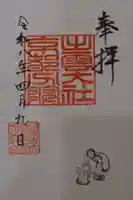 奉拝
出雲大社
京都分院
令和八年四月九日